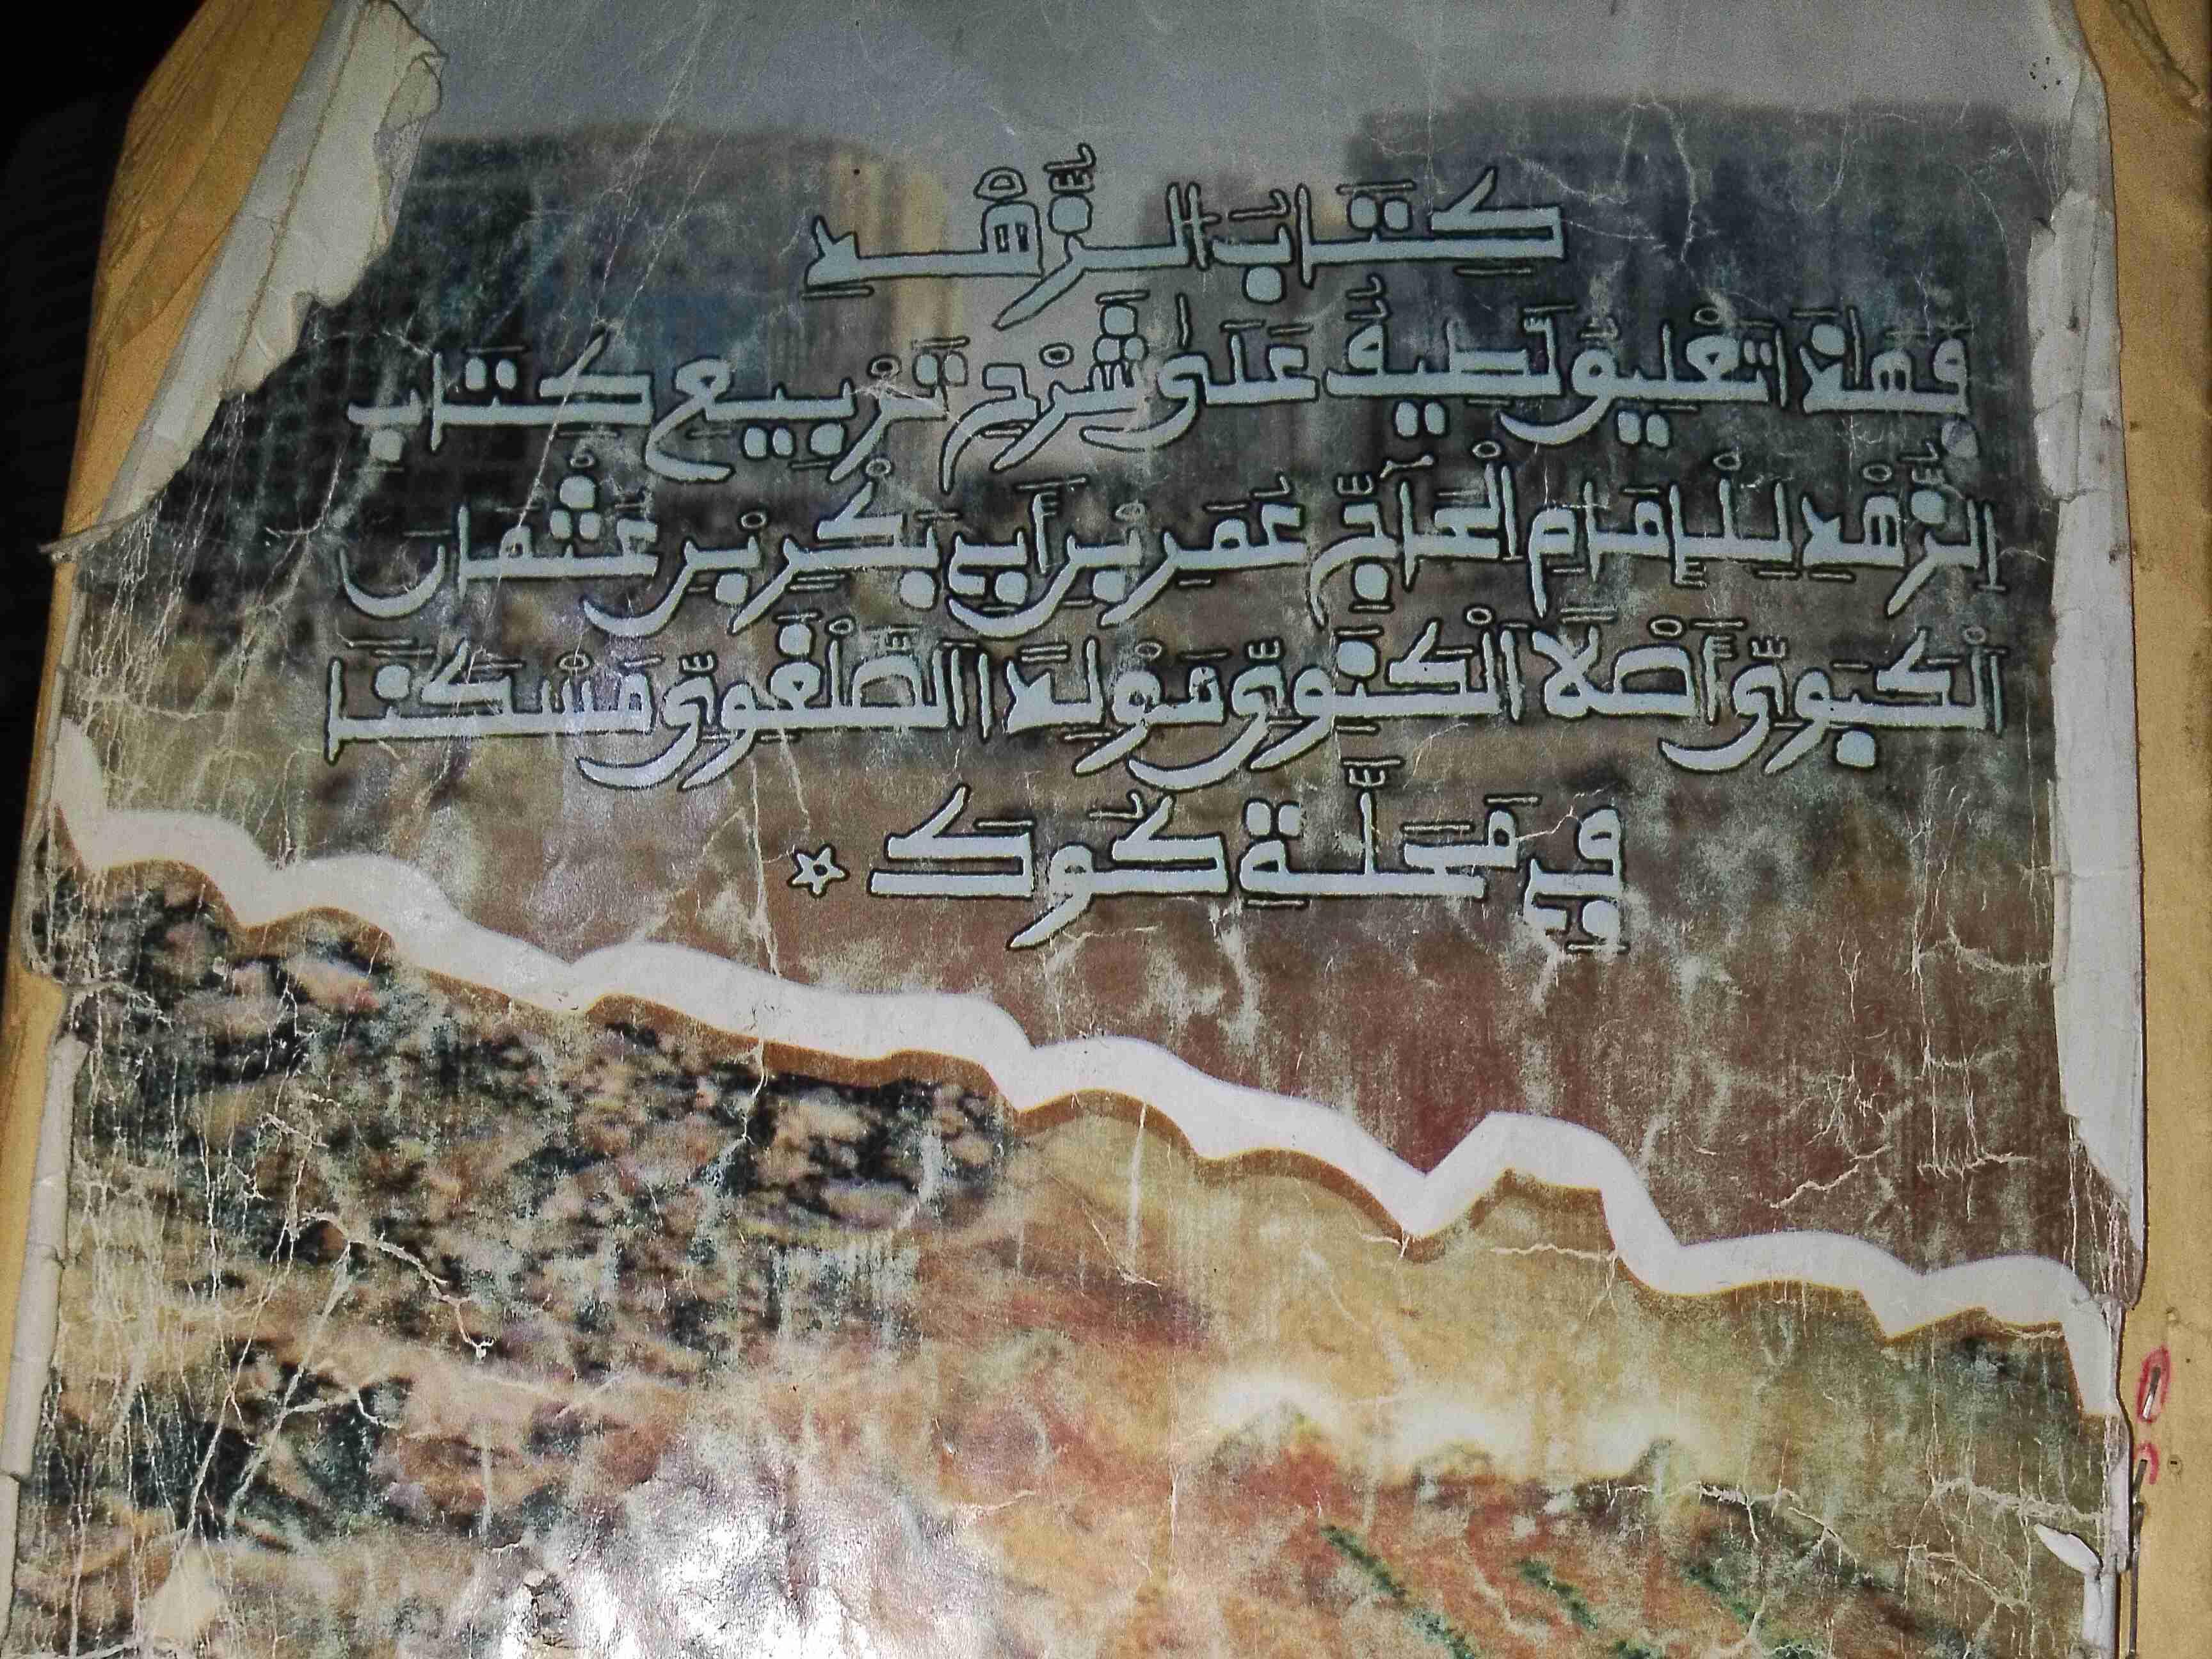 كِتَابُ الزُّهْدِ
فَهَٰذَا تَعْلِيقٌ لَطِيفٌ عَلَىٰ شَرْحِ تَرْبِيعِ كِتَابِ
الزُّهْدِ لِلْإِمَامِ الْحَآجِّ عُمَرَ بْنِ أَبِي بَكْرِ بْنِ عُثْمَانَ
الْكَبَوِيِّ أَصْلًا الْكَنَوِيِّ مَوْلِدًا الصَّلْغَوِيِّ مَسْكَنَا
فِي مَحَلَّةِ كُوكَ ★